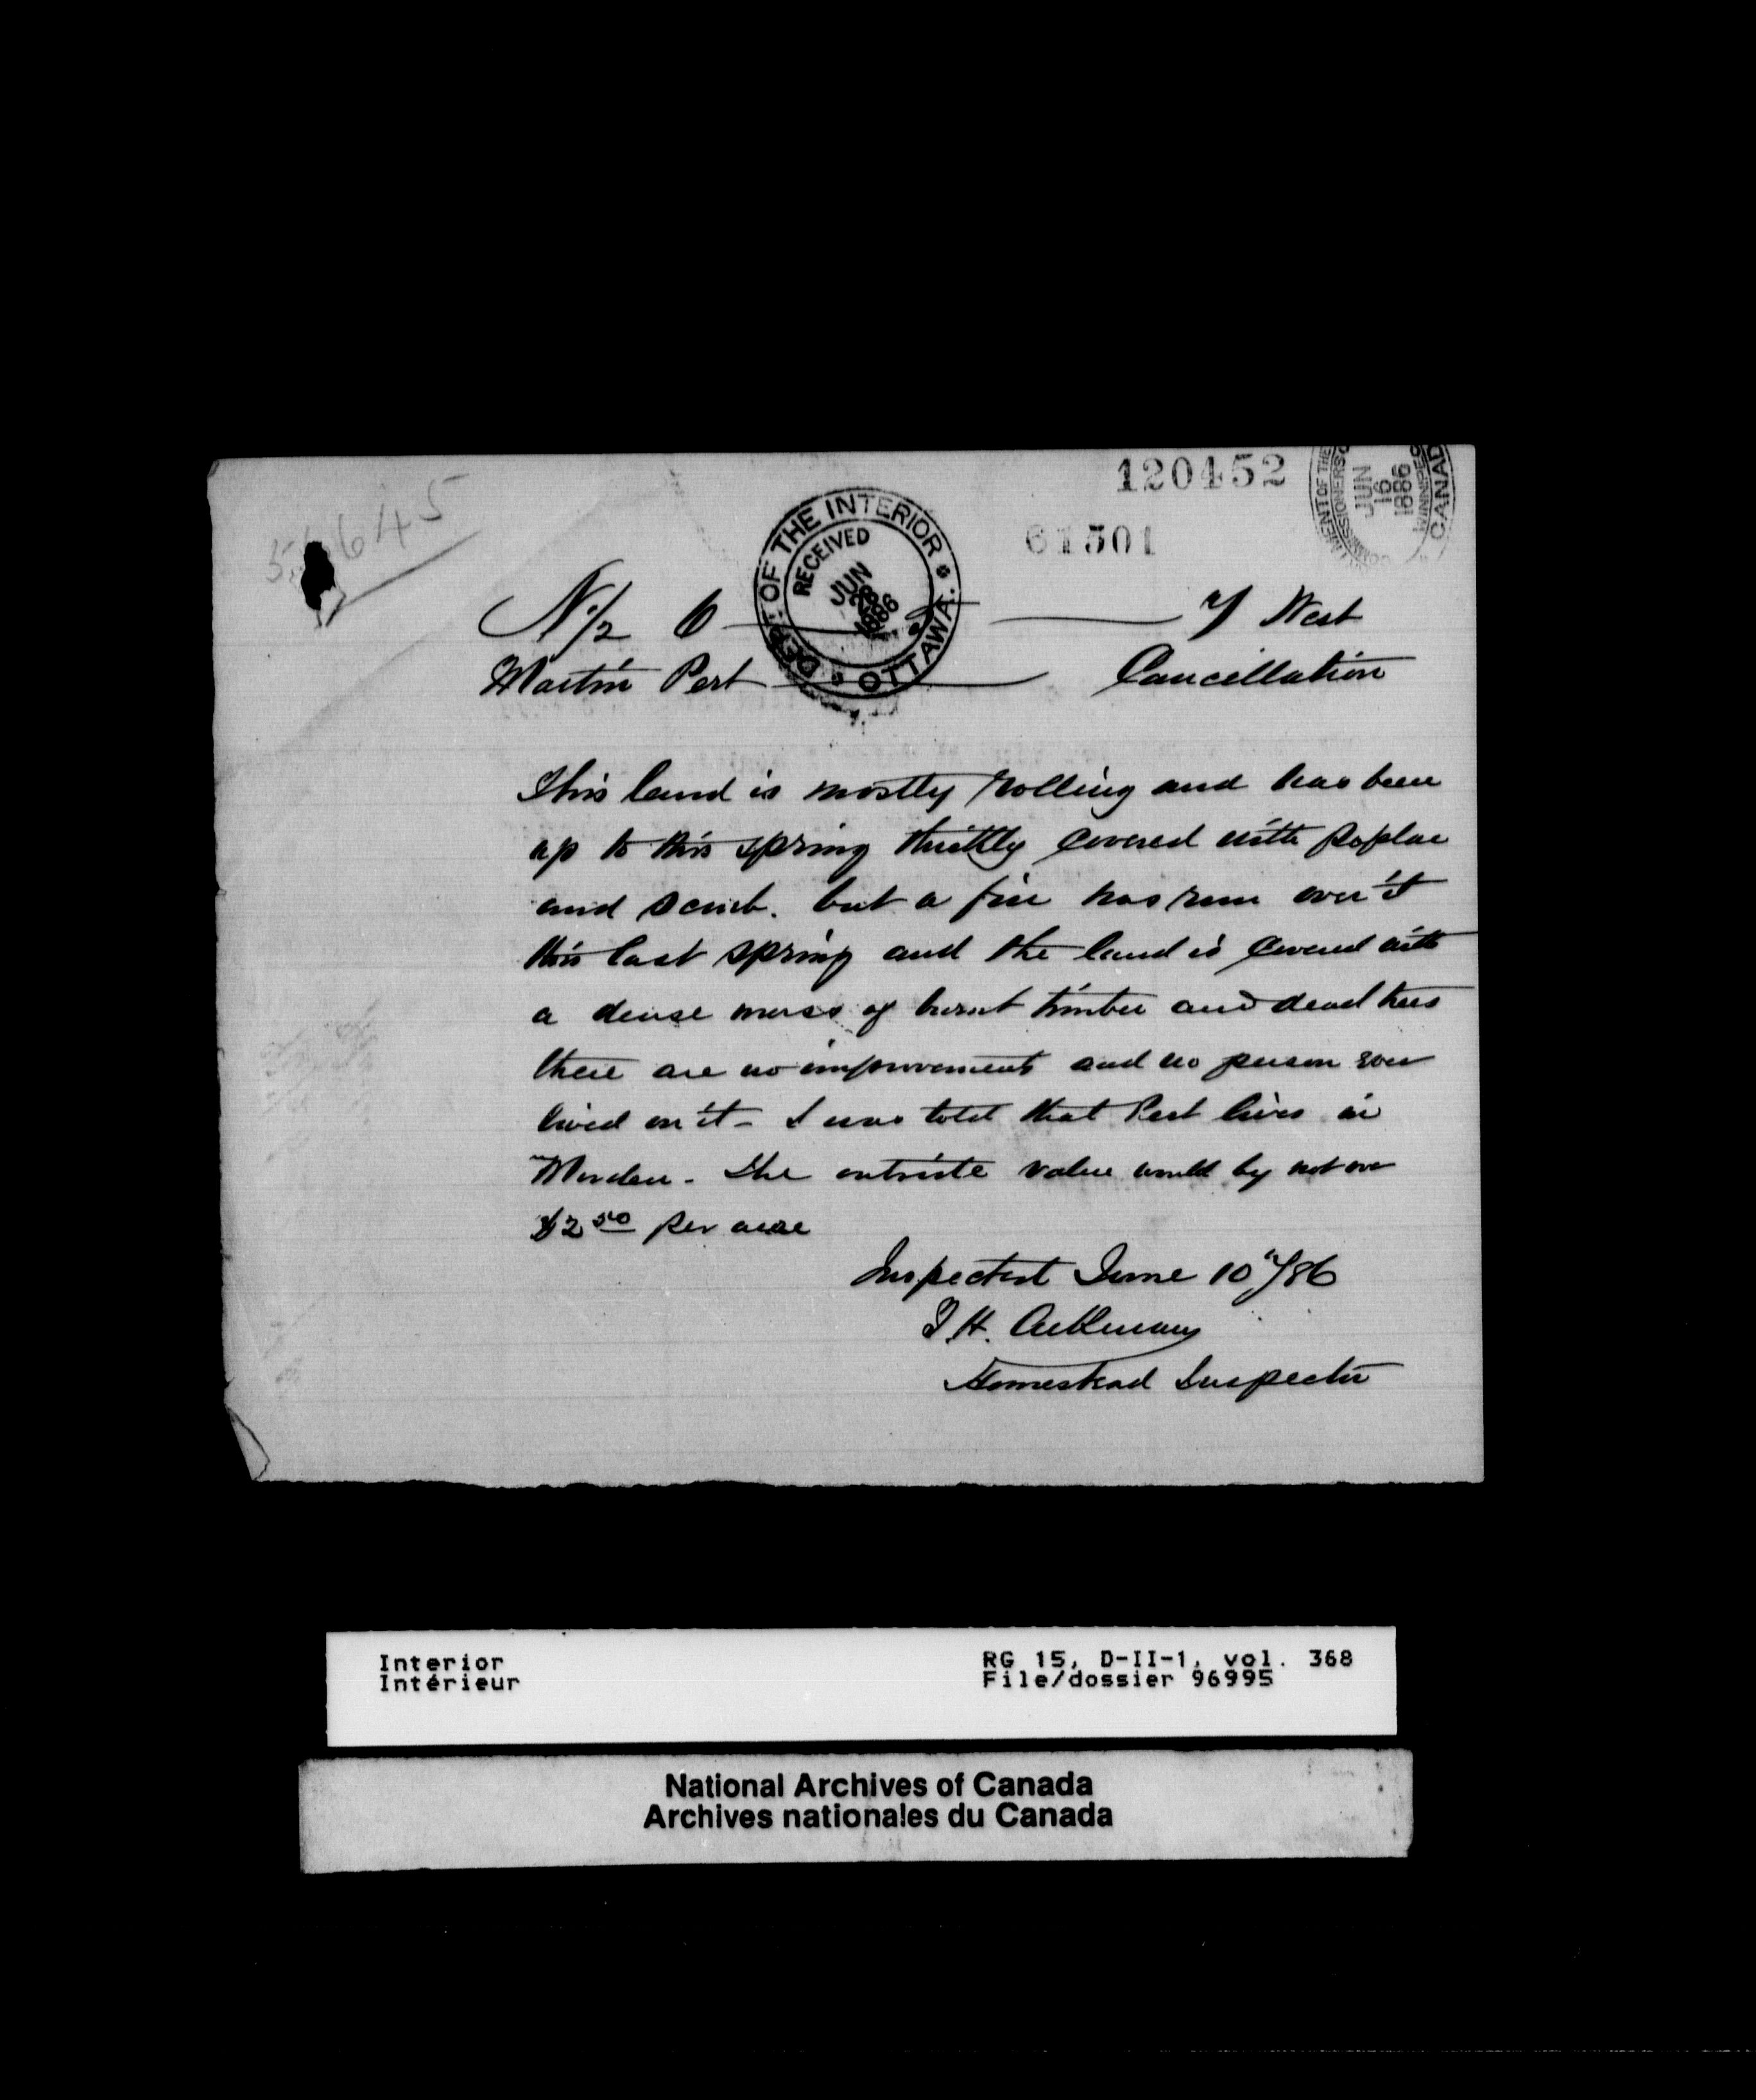 120452
DEPT. OF THE INTERIOR
RECEIVED
JUN
28
1886
OTTAWA.
JUN
16
1886
WINNIPEG
CANAD
61501
645
N 1/2 6 7 West
Martin Pert Cancellation
This land is mostly rolling and has been
up to this spring thickly covered with poplar
and scrub. but a fire has run over it
this last spring and the land is covered with
a dense mass of burnt timber and dead trees
there are no improvements and no person ever
lived on it - I was told that Pert lives in
Morden - The outside value would by not over
$2 50 per acre
Inspected June 10th/86
Homestead Inspector
Interior
Intérieur
RG 15, D-II-1, vol. 368
File/dossier 96995
National Archives of Canada
Archives nationales du Canada